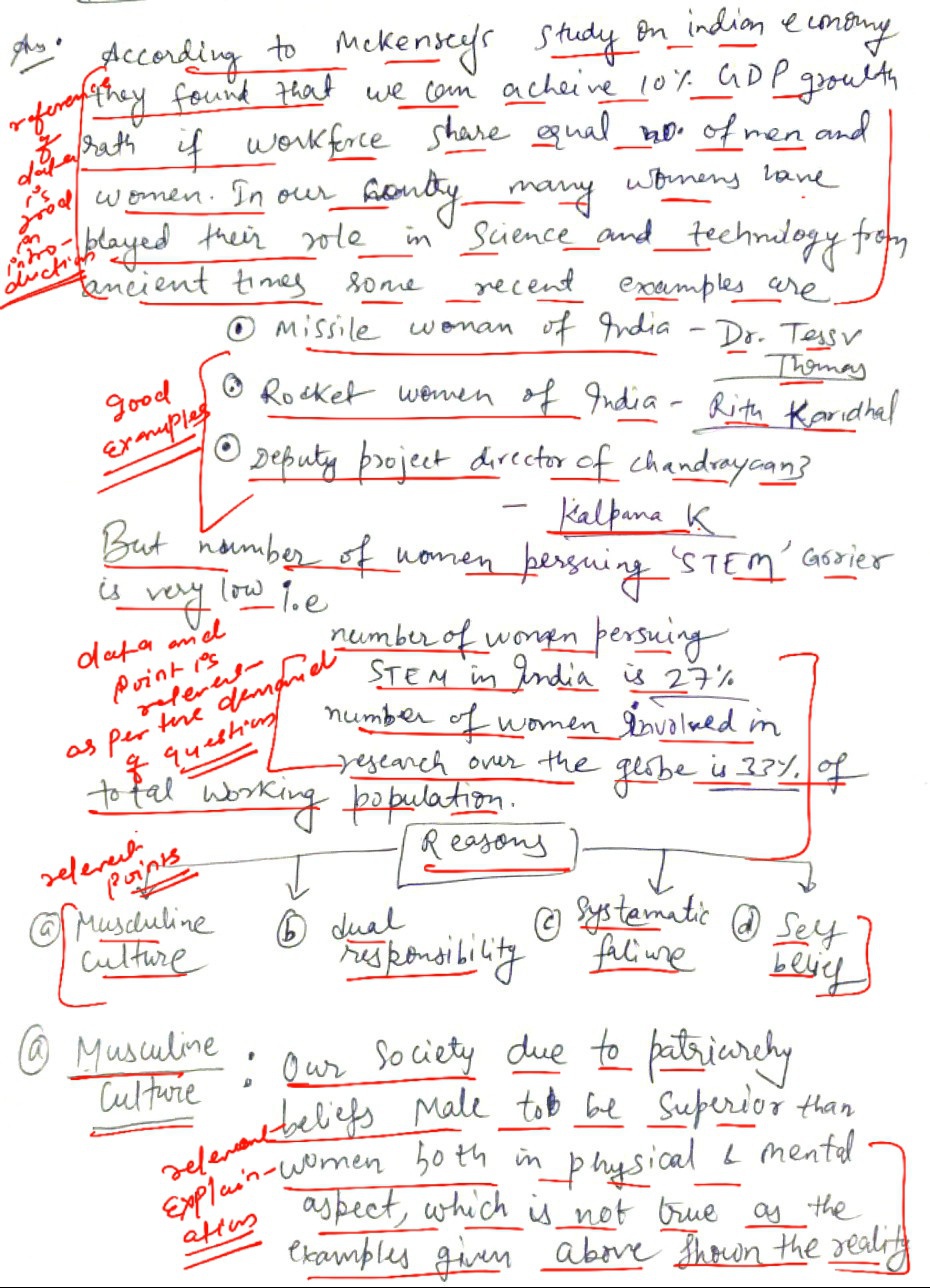 Ans. According to Mckensey's study on indian economy
they found that we can acheive 10% GDP growth
rath if workforce share equal no. of men and
women. In our country many womens have
played their role in Science and technology from
ancient times some recent examples are
reference of data is good in intro-duction
⊙ Missile woman of India - Dr. Tessy
Thomas
⊙ Rocket women of India - Ritu Karidhal
⊙ Deputy project director of chandrayaan3
- Kalpana K
good examples
But number of women persuing 'STEM' Carrier
is very low i.e
number of women persuing
STEM in India is 27%
number of women involved in
research over the globe is 33% of
total working population.
data and point is relevent as per the demand of question
Reasons
relevent points
(a) Musculine culture
(b) dual responsibility
(c) Systamatic faliure
(d) Self belief
(a) Musculine culture : Our Society due to patriarchy
beliefs Male to be Superior than
women both in physical & mental
aspect, which is not true as the
examples given above shown the reality
relevent explain-ation